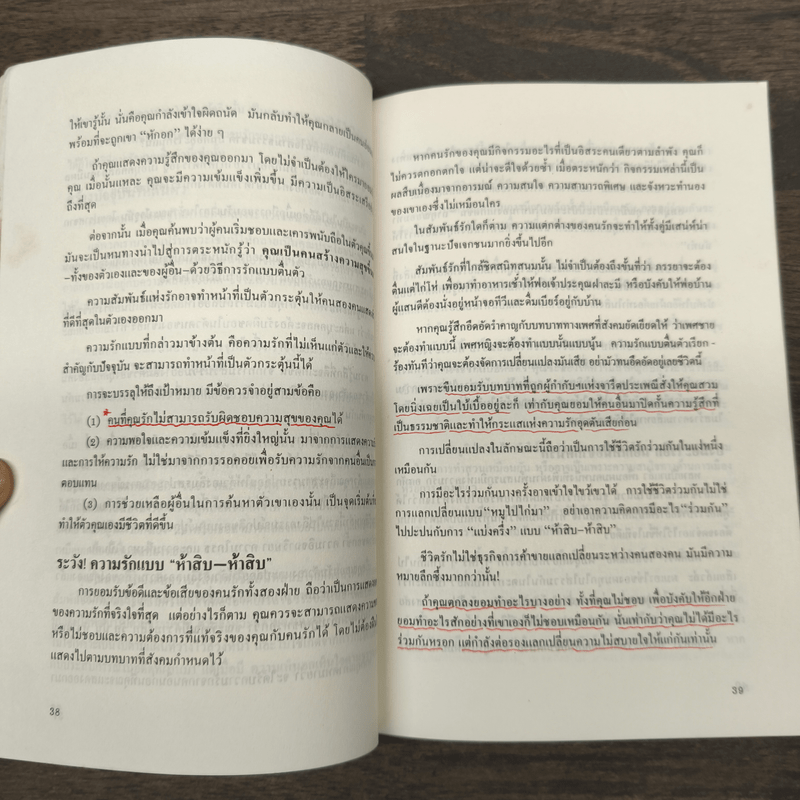 ให้เขารู้นั้น นั่นคือคุณกำลังเข้าใจผิดถนัด มันกลับทำให้คุณกลายเป็นคน
พร้อมที่จะถูกเขา “หักอก” ได้ง่าย ๆ
ถ้าคุณแสดงความรู้สึกของคุณออกมา โดยไม่จำเป็นต้องให้ใครมา
คุณ เมื่อนั้นแหละ คุณจะมีความเข้มแข็งเพิ่มขึ้น มีความเป็นอิสระ
ถึงที่สุด
ต่อจากนั้น เมื่อคุณค้นพบว่าผู้คนเริ่มชอบและเคารพนับถือในตัวคุณ
มันจะเป็นหนทางนำไปสู่การตระหนักรู้ว่า คุณเป็นคนสร้างความสุข
-ทั้งของตัวเองและของผู้อื่น-ด้วยวิธีการรักแบบตื่นตัว
ความสัมพันธ์แห่งรักอาจทำหน้าที่เป็นตัวกระตุ้นให้คนสองคน
ที่ดีที่สุดในตัวเองออกมา
ความรักแบบที่กล่าวมาข้างต้น คือความรักที่ไม่เห็นแก่ตัวและให้
สำคัญกับปัจจุบัน จะสามารถทำหน้าที่เป็นตัวกระตุ้นนี้ได้
การจะบรรลุให้ถึงเป้าหมาย มีข้อควรจำอยู่สามข้อคือ
(1) คนที่คุณรักไม่สามารถรับผิดชอบความสุขของคุณได้
(2) ความพอใจและความเข้มแข็งที่ยิ่งใหญ่นั้น มาจากการแสดง
และการให้ความรัก ไม่ใช่มาจากการรอคอยเพื่อรับความรักจากคนอื่น
ตอบแทน
(3) การช่วยเหลือผู้อื่นในการค้นหาตัวเขาเองนั้น เป็นจุดเริ่มต้น
ทำให้ตัวคุณเองมีชีวิตที่ดีขึ้น
ระวัง! ความรักแบบ “ห้าสิบ—ห้าสิบ”
การยอมรับข้อดีและข้อเสียของคนรักทั้งสองฝ่าย ถือว่าเป็นการแสดง
ของความรักที่จริงใจที่สุด แต่อย่างไรก็ตาม คุณควรจะสามารถแสดง
หรือไม่ชอบและความต้องการที่แท้จริงของคุณกับคนรักได้ โดยไม่ต้อง
แสดงไปตามบทบาทที่สังคมกำหนดไว้
38
หากคนรักของคุณมีกิจกรรมอะไรที่เป็นอิสระคนเดียวตามลำพัง คุณก็
ไม่ควรตกอกตกใจ แต่น่าจะดีใจด้วยซ้ำ เมื่อตระหนักว่า กิจกรรมเหล่านี้เป็น
ผลสืบเนื่องมาจากอารมณ์ ความสนใจ ความสามารถพิเศษ และจังหวะทำนอง
ของเขาเองซึ่งไม่เหมือนใคร
ในสัมพันธ์รักใดก็ตาม ความแตกต่างของคนรักจะทำให้ทั้งคู่มีเสน่ห์น่า
สนใจในฐานะปัจเจกชนมากยิ่งขึ้นไปอีก
สัมพันธ์รักที่ใกล้ชิดสนิทสนมนั้น ไม่จำเป็นต้องถึงขั้นที่ว่า ภรรยาจะต้อง
ตื่นแต่ไก่โห่ เพื่อมาทำอาหารเช้าให้พ่อเจ้าประคุณฝ่าละมี หรือบังคับให้พ่อบ้าน
ผู้แสนดีต้องนั่งอยู่หน้าจอทีวีและดื่มเบียร์อยู่กับบ้าน
หากคุณรู้สึกอึดอัดรำคาญกับบทบาททางเพศที่สังคมยัดเยียดให้ ว่าเพศชาย
จะต้องทำแบบนี้ เพศหญิงจะต้องทำแบบนั้นแบบนู้น ความรักแบบตื่นตัวเรียก-
ร้องทันทีว่าคุณจะต้องจัดการเปลี่ยนแปลงมันเสีย อย่ามัวทนอึดอัดอยู่เลยชีวิตนี้
เพราะขืนยอมรับบทบาทที่ถูกผู้กำกับฯแห่งจารีตประเพณีสั่งให้คุณสวม
โดยนิ่งเฉยเป็นใบ้เบื้ออยู่ละก็ เท่ากับคุณยอมให้คนอื่นมาปิดกั้นความรู้สึกที่
เป็นธรรมชาติและทำให้กระแสแห่งความรักอุดตันเสียก่อน
การเปลี่ยนแปลงในลักษณะนี้ถือว่าเป็นการใช้ชีวิตรักร่วมกันในแง่หนึ่ง
เหมือนกัน
การมีอะไรร่วมกันบางครั้งอาจเข้าใจไขว้เขวได้ การใช้ชีวิตร่วมกันไม่ใช่
การแลกเปลี่ยนแบบ“หมูไปไก่มา” อย่าเอาความคิดการมีอะไร“ร่วมกัน”
ไปปะปนกับการ “แบ่งครึ่ง” แบบ “ห้าสิบ-ห้าสิบ”
ชีวิตรักไม่ใช่ธุรกิจการค้าขายแลกเปลี่ยนระหว่างคนสองคน มันมีความ
หมายลึกซึ้งมากกว่านั้น!
ถ้าคุณตกลงยอมทำอะไรบางอย่าง ทั้งที่คุณไม่ชอบ เพื่อบังคับให้อีกฝ่าย
ยอมทำอะไรสักอย่างที่เขาเองก็ไม่ชอบเหมือนกัน นั่นเท่ากับว่าคุณไม่ได้มีอะไร
ร่วมกันหรอก แต่กำลังต่อรองแลกเปลี่ยนความไม่สบายใจให้แก่กันเท่านั้น
39